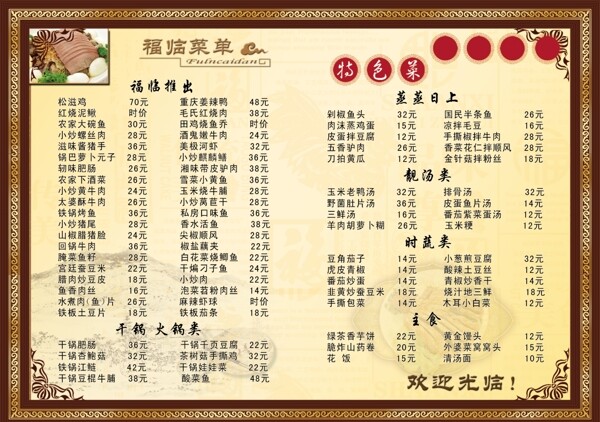 福临菜单
Fulincaidan
福临推出
松滋鸡 70元 重庆姜辣鸭 48元
红烧泥鳅 时价 毛氏红烧肉 38元
农家大碗鱼 30元 田鸡烧鱼乔 时价
小炒螺丝肉 28元 酒鬼嫩牛肉 24元
滋味酱猪手 36元 美极河虾 32元
锅巴萝卜元子 28元 小炒麒麟鳝 36元
轫味肥肠 26元 湘味带皮驴肉 38元
农家下酒菜 26元 雪菜小黄鱼 36元
小炒黄牛肉 24元 玉米烧牛脯 28元
太婆酥牛肉 26元 小炒莴苣干 28元
铁锅烤鱼 36元 私房口味鱼 36元
小炒猪尾 28元 香水活鱼 38元
山椒腊猪脸 24元 尖椒顺风 28元
回锅牛肉 36元 椒盐藕夹 22元
腌菜鱼籽 28元 白花菜烧鲫鱼 22元
宫廷蚕豆米 22元 干煸刁子鱼 24元
腊肉炒豆皮 18元 小炒肉 22元
鱼香肉丝 16元 泡菜苕粉肉丝 14元
水煮肉(鱼)片 26元 麻辣虾球 时价
铁板土豆片 18元 铁板茄条 18元
干锅 火锅类
干锅肥肠 36元 干锅千页豆腐 22元
干锅杏鲍菇 32元 茶树菇手撕鸡 32元
铁锅江鲢 42元 干锅娃娃菜 22元
干锅豆棍牛脯 38元 酸菜鱼 48元
特色菜
蒸蒸日上
剁椒鱼头 32元 国民半条鱼 26元
肉沫蒸鸡蛋 15元 凉拌毛豆 16元
皮蛋拌豆腐 12元 手撕椒拌牛肉 28元
五香驴肉 26元 香菜花仁拌顺风 28元
刀拍黄瓜 12元 金针菇拌粉丝 18元
靓汤类
玉米老鸭汤 32元 排骨汤 32元
野菌肚片汤 36元 皮蛋鱼片汤 14元
三鲜汤 16元 番茄紫菜蛋汤 12元
羊肉胡萝卜糊 26元 玉米粳 12元
时蔬类
豆角茄子 14元 小葱煎豆腐 32元
虎皮青椒 14元 酸辣土豆丝 12元
番茄炒蛋 14元 青椒炒香干 14元
韭黄炒蚕豆米 18元 烧汁地三鲜 18元
手撕包菜 14元 木耳小白菜 12元
主食
绿茶香芋饼 22元 黄金馒头 12元
脆炸山药卷 20元 外婆菜窝窝头 15元
花饭 15元 清汤面 10元
欢迎光临!